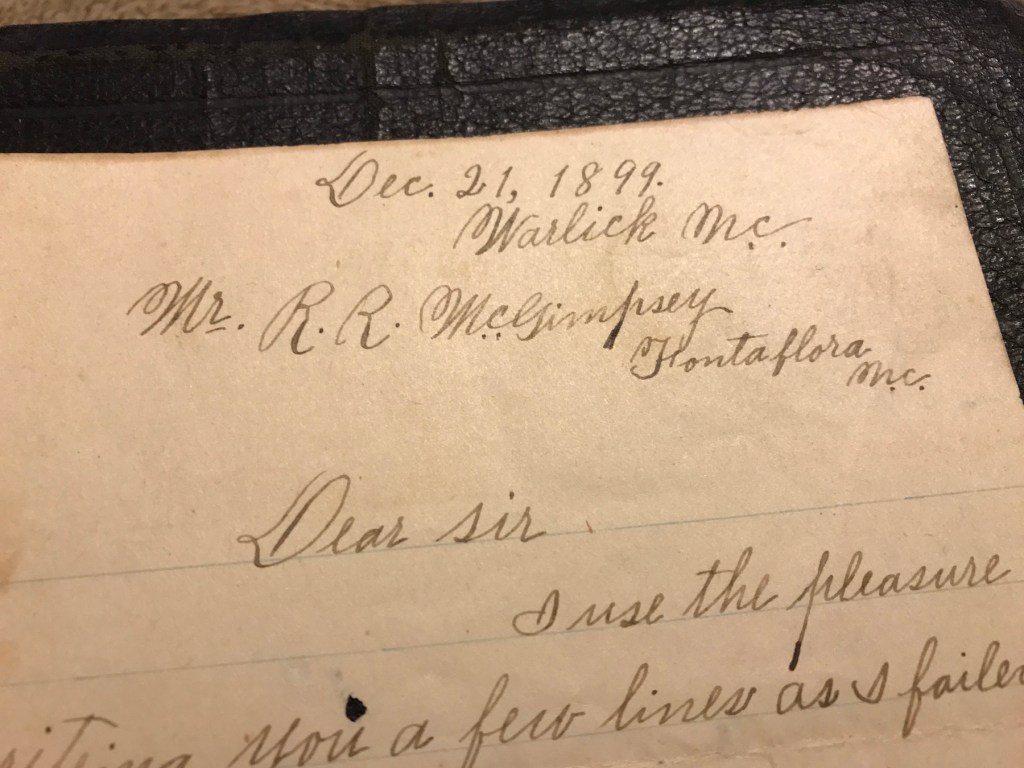 Dec. 21, 1899.
Warlick N.C.
Mr. R. R. McGimpsey
Fontaflora
N.C.
Dear sir
I use the pleasure
you a few lines as I